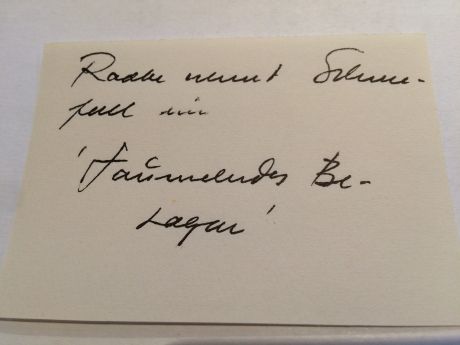 Raabe nennt Schnee-
fall ein
'Taumelndes Be-
hagen'